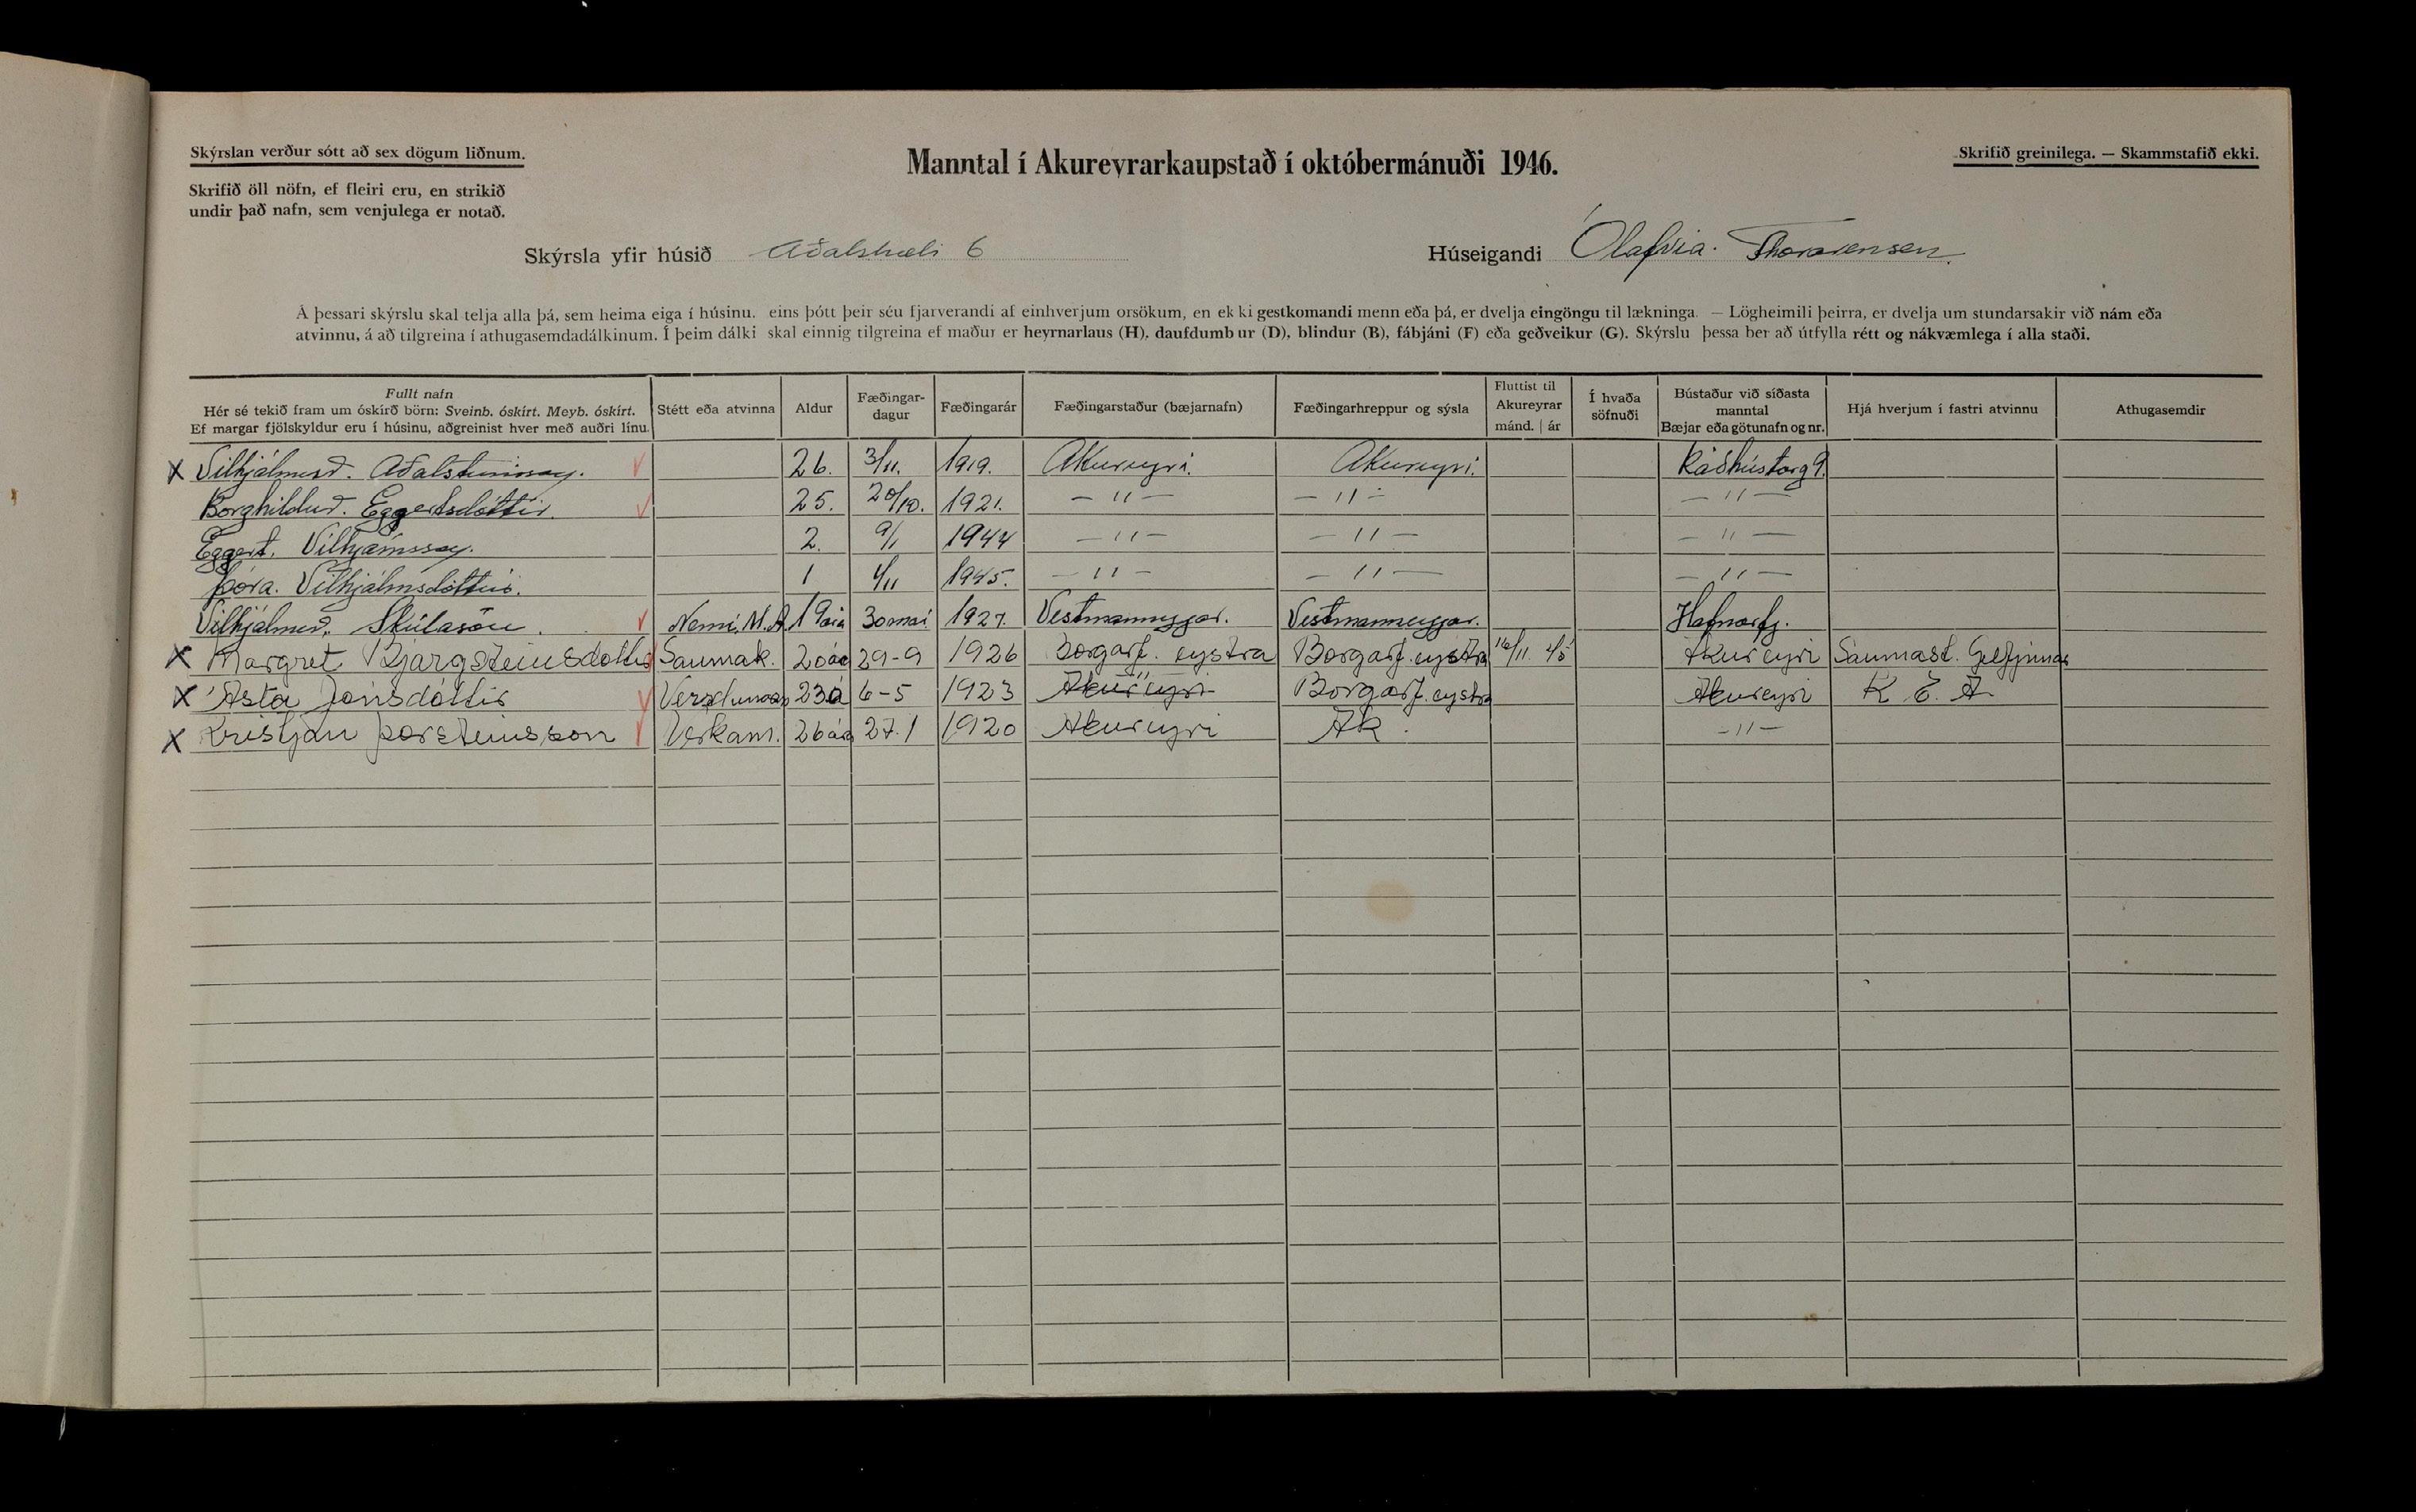 Skýrslan verður sótt að sex dögum liðnum.
Manntal í Akureyrarkaupstað í októbermánuði 1946.
Skrifið greinilega. — Skammstafið ekki.
Skrifið öll nöfn, ef fleiri eru, en strikið
undir það nafn, sem venjulega er notað.
Skýrsla yfir húsið Aðalstræti 6
Húseigandi Ólafvia. Thorarensen.
Á þessari skýrslu skal telja alla þá, sem heima eiga í húsinu, eins þótt þeir séu fjarverandi af einhverjum orsökum, en ekki gestkomandi menn eða þá, er dvelja eingöngu til lækninga. — Lögheimili þeirra, er dvelja um stundarsakir við nám eða
atvinnu, á að tilgreina í athugasemdadálkinum. Í þeim dálki skal einnig tilgreina ef maður er heyrnarlaus (H), daufdumbur (D), blindur (B), fábjáni (F) eða geðveikur (G). Skýrslu þessa ber að útfylla rétt og nákvæmlega í alla staði.
Fullt nafn
Hér sé tekið fram um óskírð börn: Sveinb. óskírt. Meyb. óskírt.
Ef margar fjölskyldur eru í húsinu, aðgreinist hver með auðri línu.
Stétt eða atvinna
Aldur
Fæðingar-
dagur
Fæðingarár
Fæðingarstaður (bæjarnafn)
Fæðingarhreppur og sýsla
Fluttist til
Akureyrar
mánd. | ár
Í hvaða
söfnuði
Bústaður við síðasta
manntal
Bæjar eða götunafn og nr.
Hjá hverjum í fastri atvinnu
Athugasemdir
X Vilhjálmur. Aðalsteinsson. 26. 3/11. 1919. Akureyri. Akureyri. Ráðhústorg 9.
Borghildur. Eggertsdóttir. 25. 20/10. 1921. — 〃 — — 〃 — — 〃 —
Eggert. Vilhjámsson. 2. 9/1 1944 — 〃 — — 〃 — — 〃 —
Þóra. Vilhjálmsdóttir. 1 4/11 1945. — 〃 — — 〃 — — 〃 —
Vilhjálmur. Skúlason. Nemi. M.A 19 ára 30 maí 1927. Vestmanneyjar. Vestmanneyjar. Hafnarfj.
X Margret Bjargsteinsdottir Saumak. 20 ára 29-9 1926 Borgarf. eystra Borgarf. eystra 16/11 45 Akureyri Saumast. Gefjunar
X Ásta Jónsdóttir 23 á 6-5 1923 Akureyri 〃 Borgarf. eystra Akureyri K. E. A.
X Kristján Þorsteinsson Verkam. 26 ára 27.1 1920 Akureyri Ak. — 〃 —